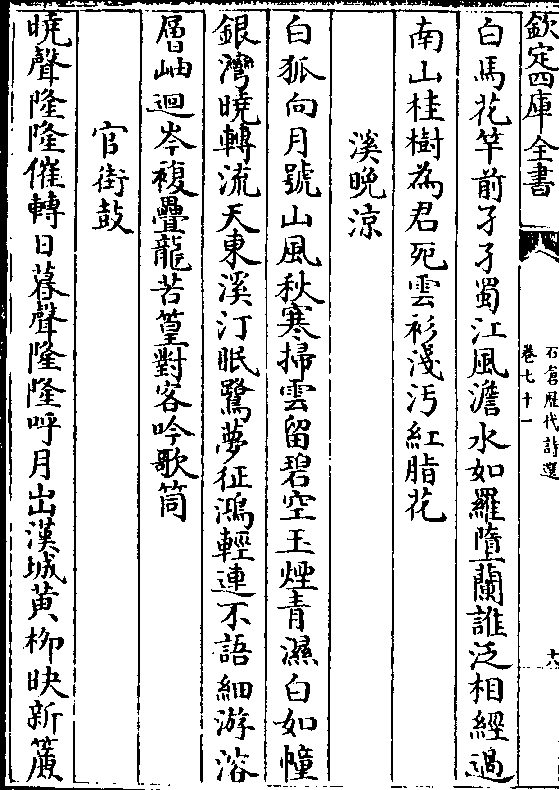 欽定四庫全書
石倉歷代詩選
卷七十一
六
白馬花竿前孑孑蜀江風澹水如羅墮蘭誰泛相經過
南山桂樹為君死雲衫淺汚紅脂花
溪晚涼
白狐向月號山風秋寒掃雲留碧空玉煙青濕白如幢
銀灣曉轉流天東溪汀眠鷺夢征鴻輕連不語細游溶
層岫迴岑複疊龍苦篁對客吟歌筒
官街鼓
曉聲隆隆催轉日暮聲隆隆呼月出漢城黄栁映新簾